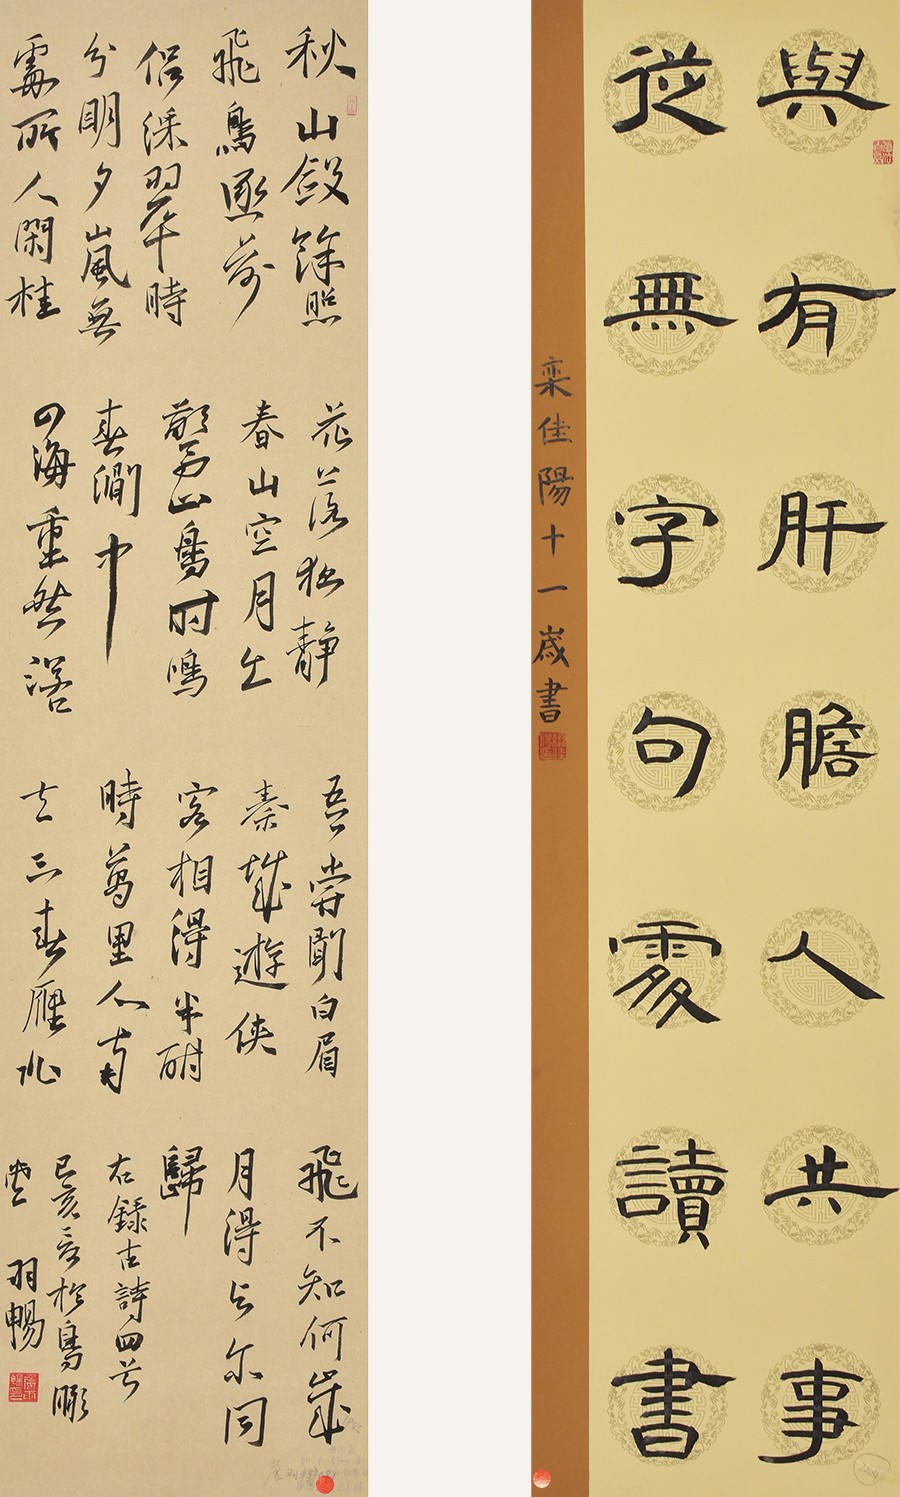 與有肝膽人共事
從無字句處讀書
栾佳陽十一歲書
秋山斂餘照
飛鳥逐前
侶綵翠時
分明夕嵐無
處所人閑桂
花落夜静
春山空月出
驚山鳥時鳴
春澗中
四海重然諾
吾嘗聞白眉
秦城遊俠
客相得半酣
時萬里人南
去三春雁北
飛不知何歲
月得與尔同
歸
右録古詩四首
己亥夏於鳥
羽暢